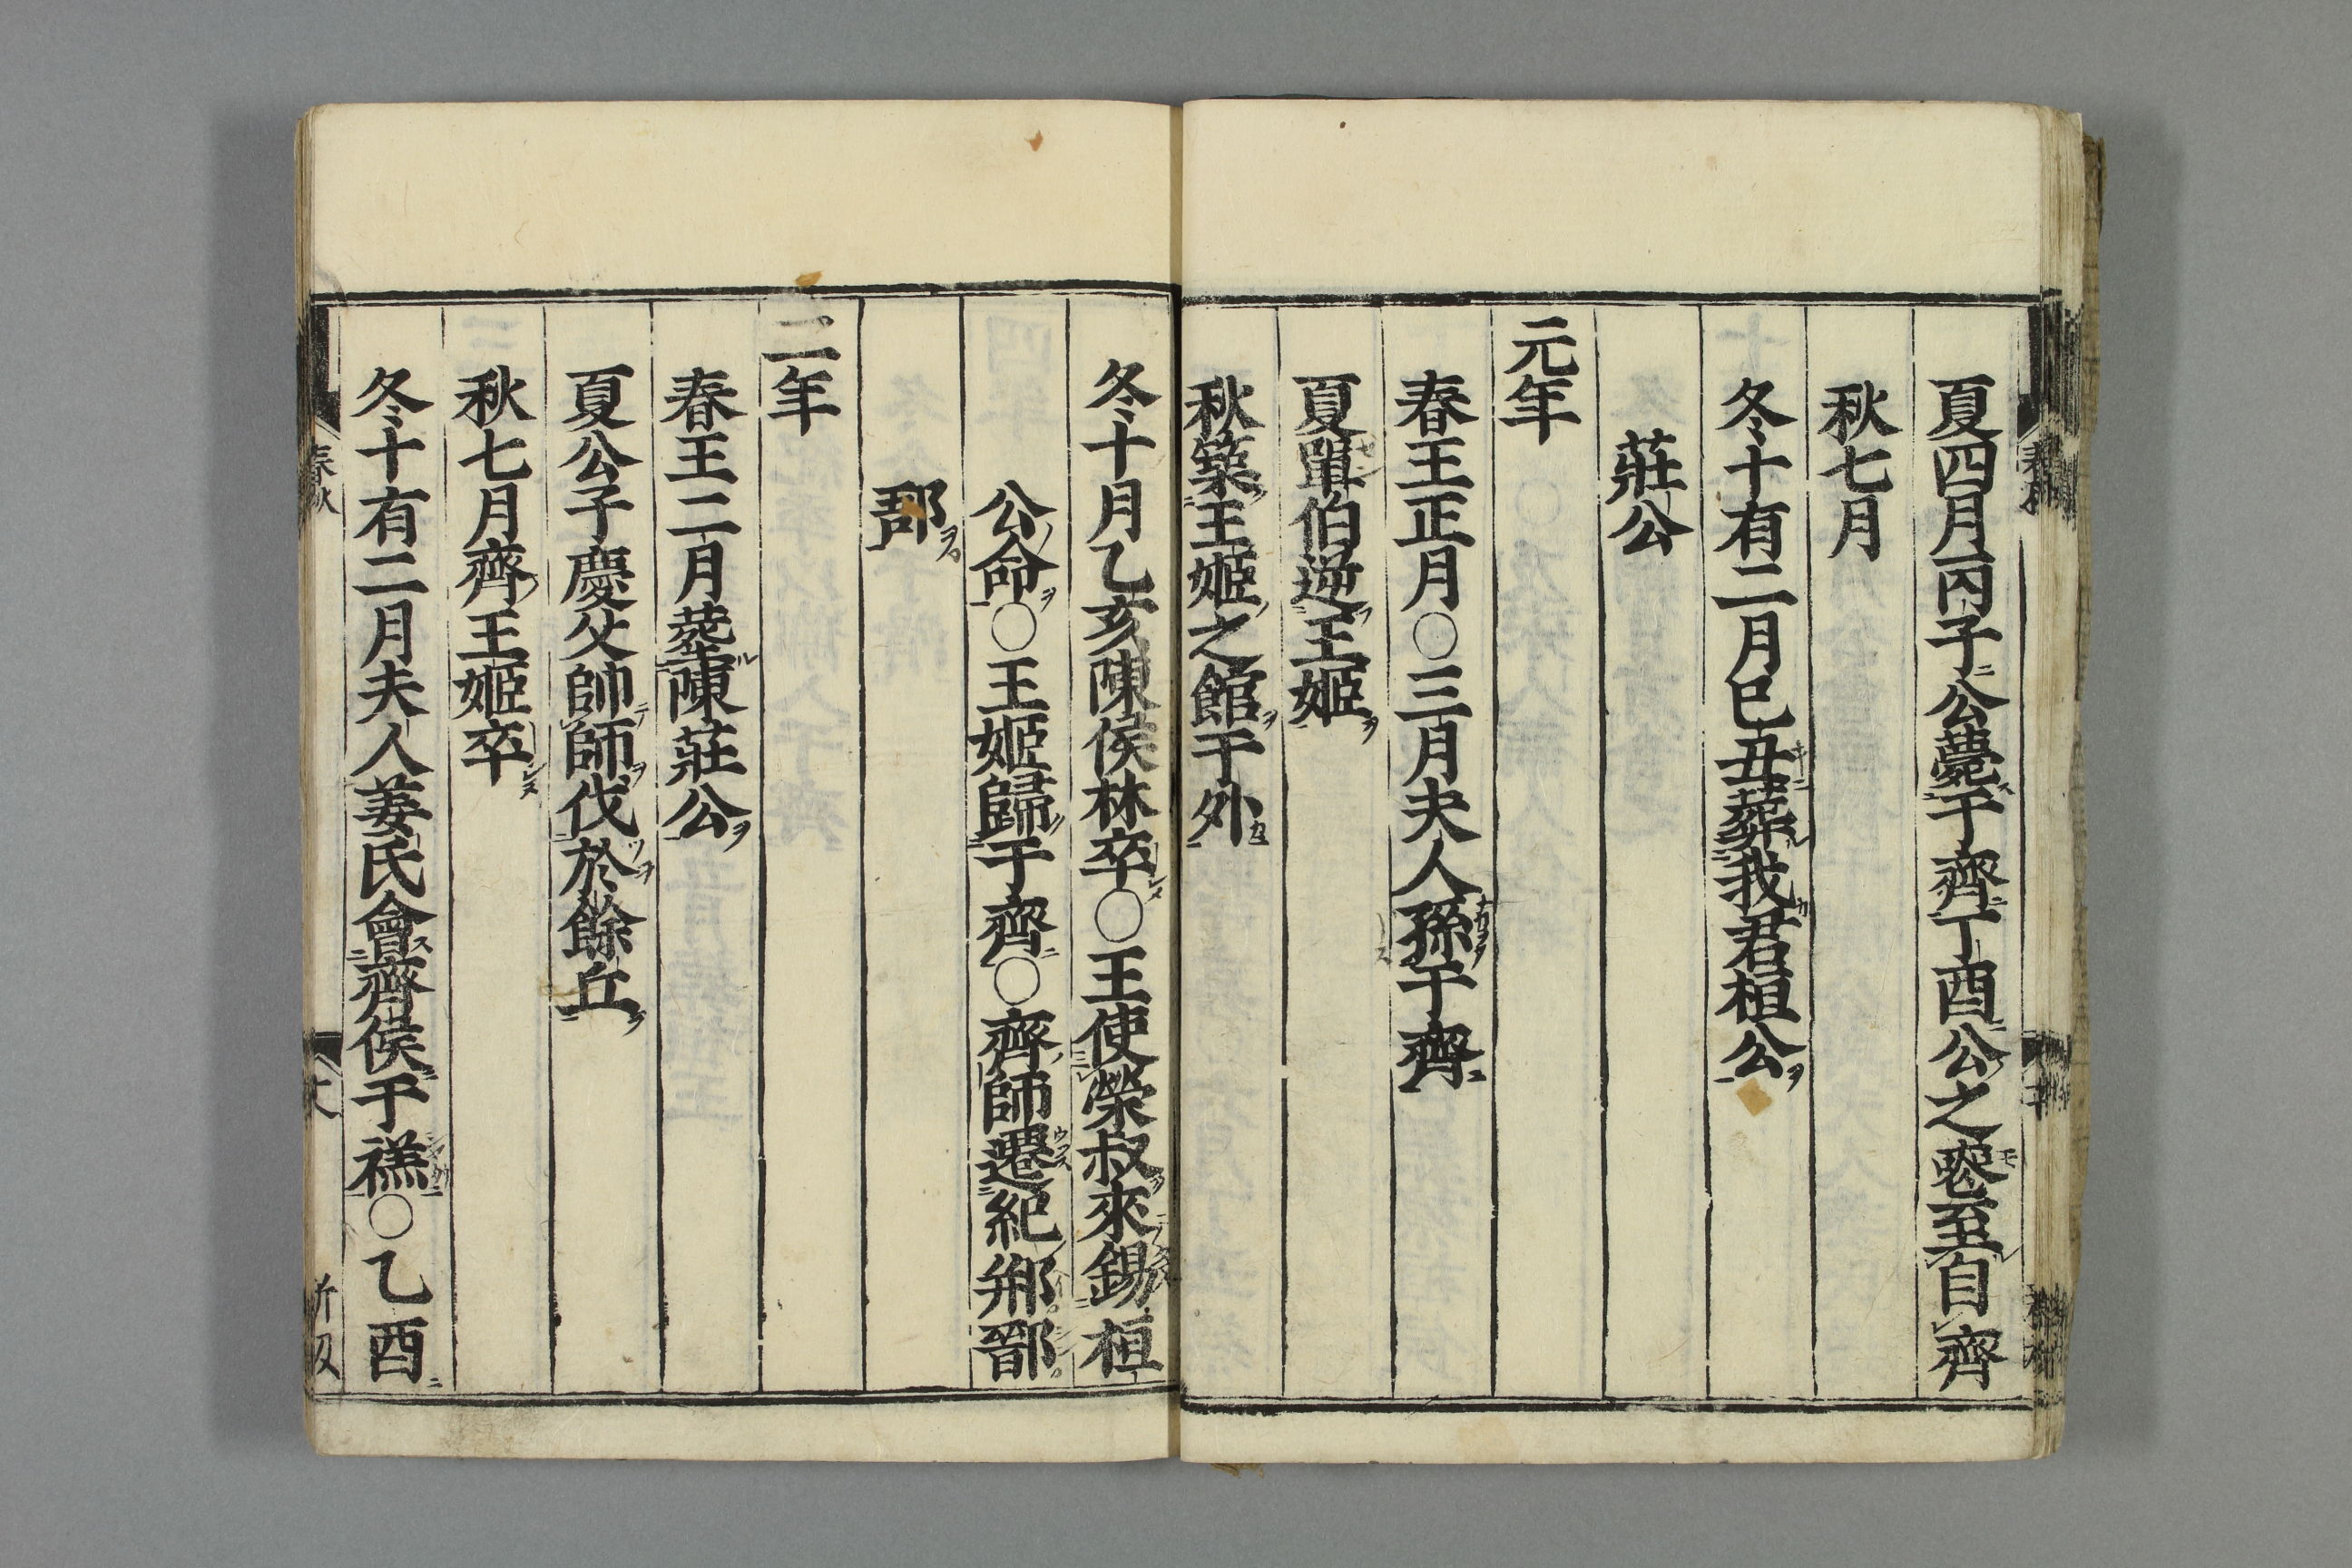 夏四月丙子公薨于齊丁酉公之喪至自齊
秋七月
冬十有二月已丑葬我君桓公
莊公
元年
春王正月〇三月夫人孫于齊
夏單伯逆王姬
秋築王姬之館于外
冬十月乙亥陳侯林卒〇王使榮叔來錫桓
公命〇王姬歸于齊〇齊師遷紀郱鄑
郚
二年
春王二月葬陳莊公
夏公子慶父帥師伐於餘丘
秋七月齊王姬卒
冬十有二月夫人姜氏會齊侯于禚〇乙酉
春秋